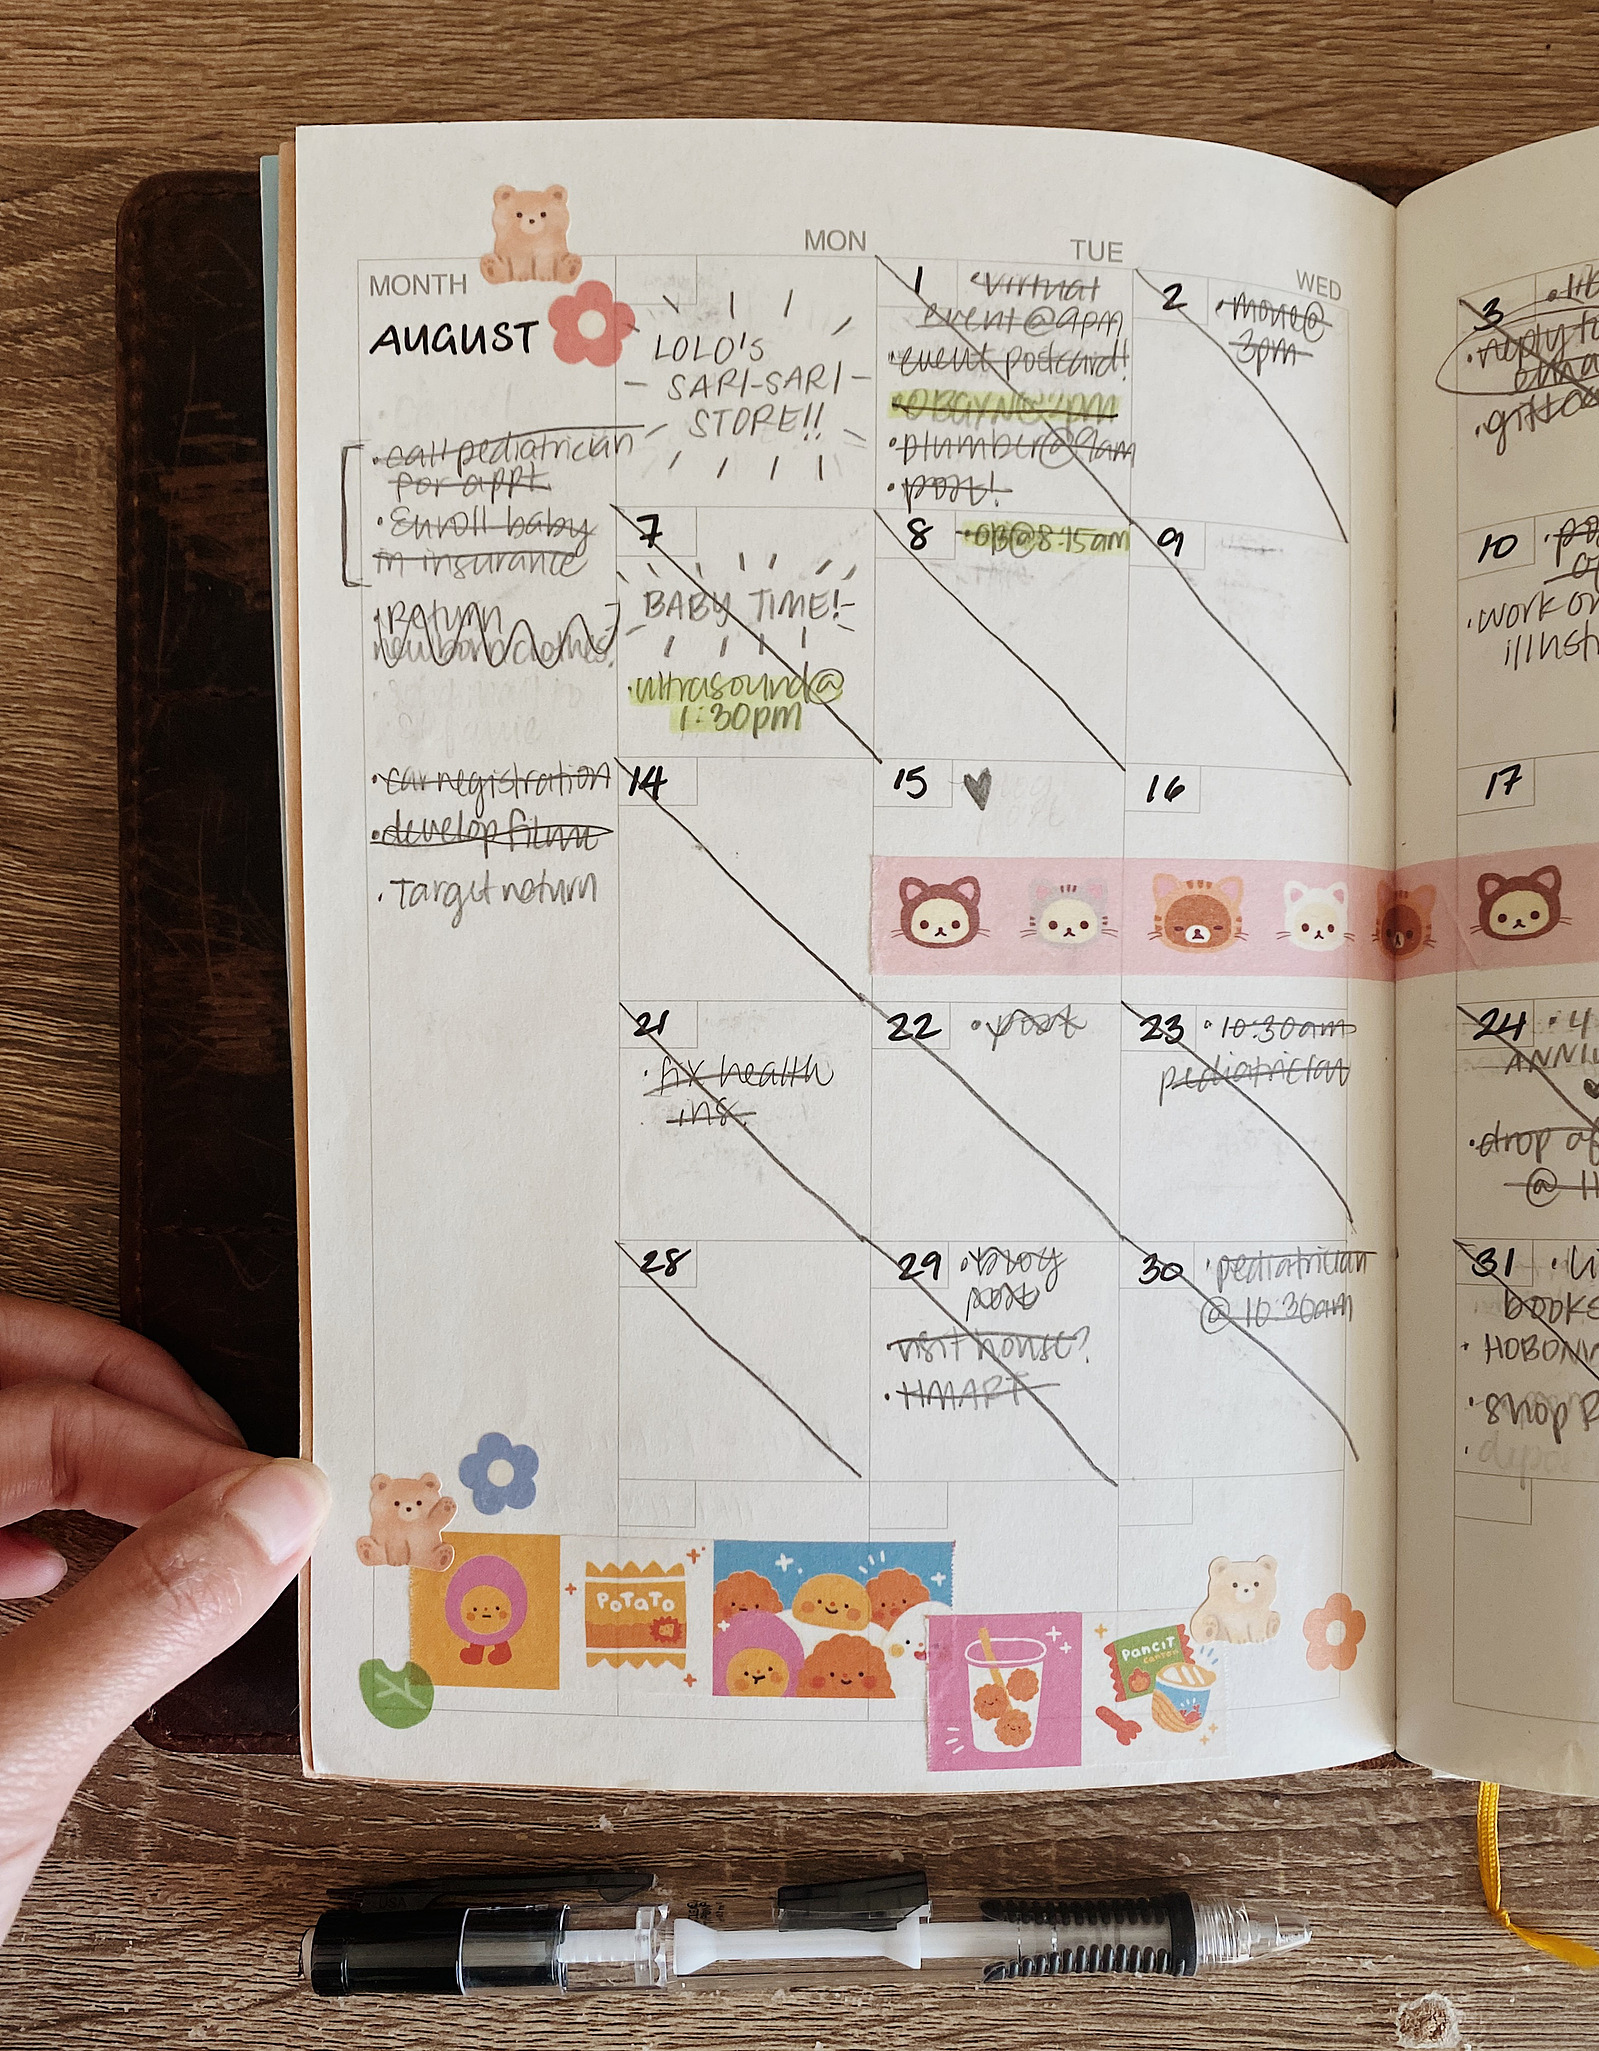 MON
TUE
WED
MONTH
AUGUST
• call pediatrician
for appt
• Enroll baby
in insurance
• Return
newborn clothes
• car registration
• develop film
• Target return
LOLO'S
SARI-SARI
STORE!!
1
• virtual
event @ 9pm
• event postcard!
• plumber @ 9am
• post!
2
3pm
3
• reply to
7
BABY TIME!
• ultrasound @
1:30pm
8
• OB @ 8:15am
9
10
• work on
14
15
16
17
21
• fix health
ins.
22
• post
23
• 10:30am
pediatrician
24
• 4
• drop
@ H
28
29
• blog
post
visit house?
• HMART
30
• pediatrician
@ 10:30am
31
books
• shop
POTATO
PANCIT
CANTON
USA